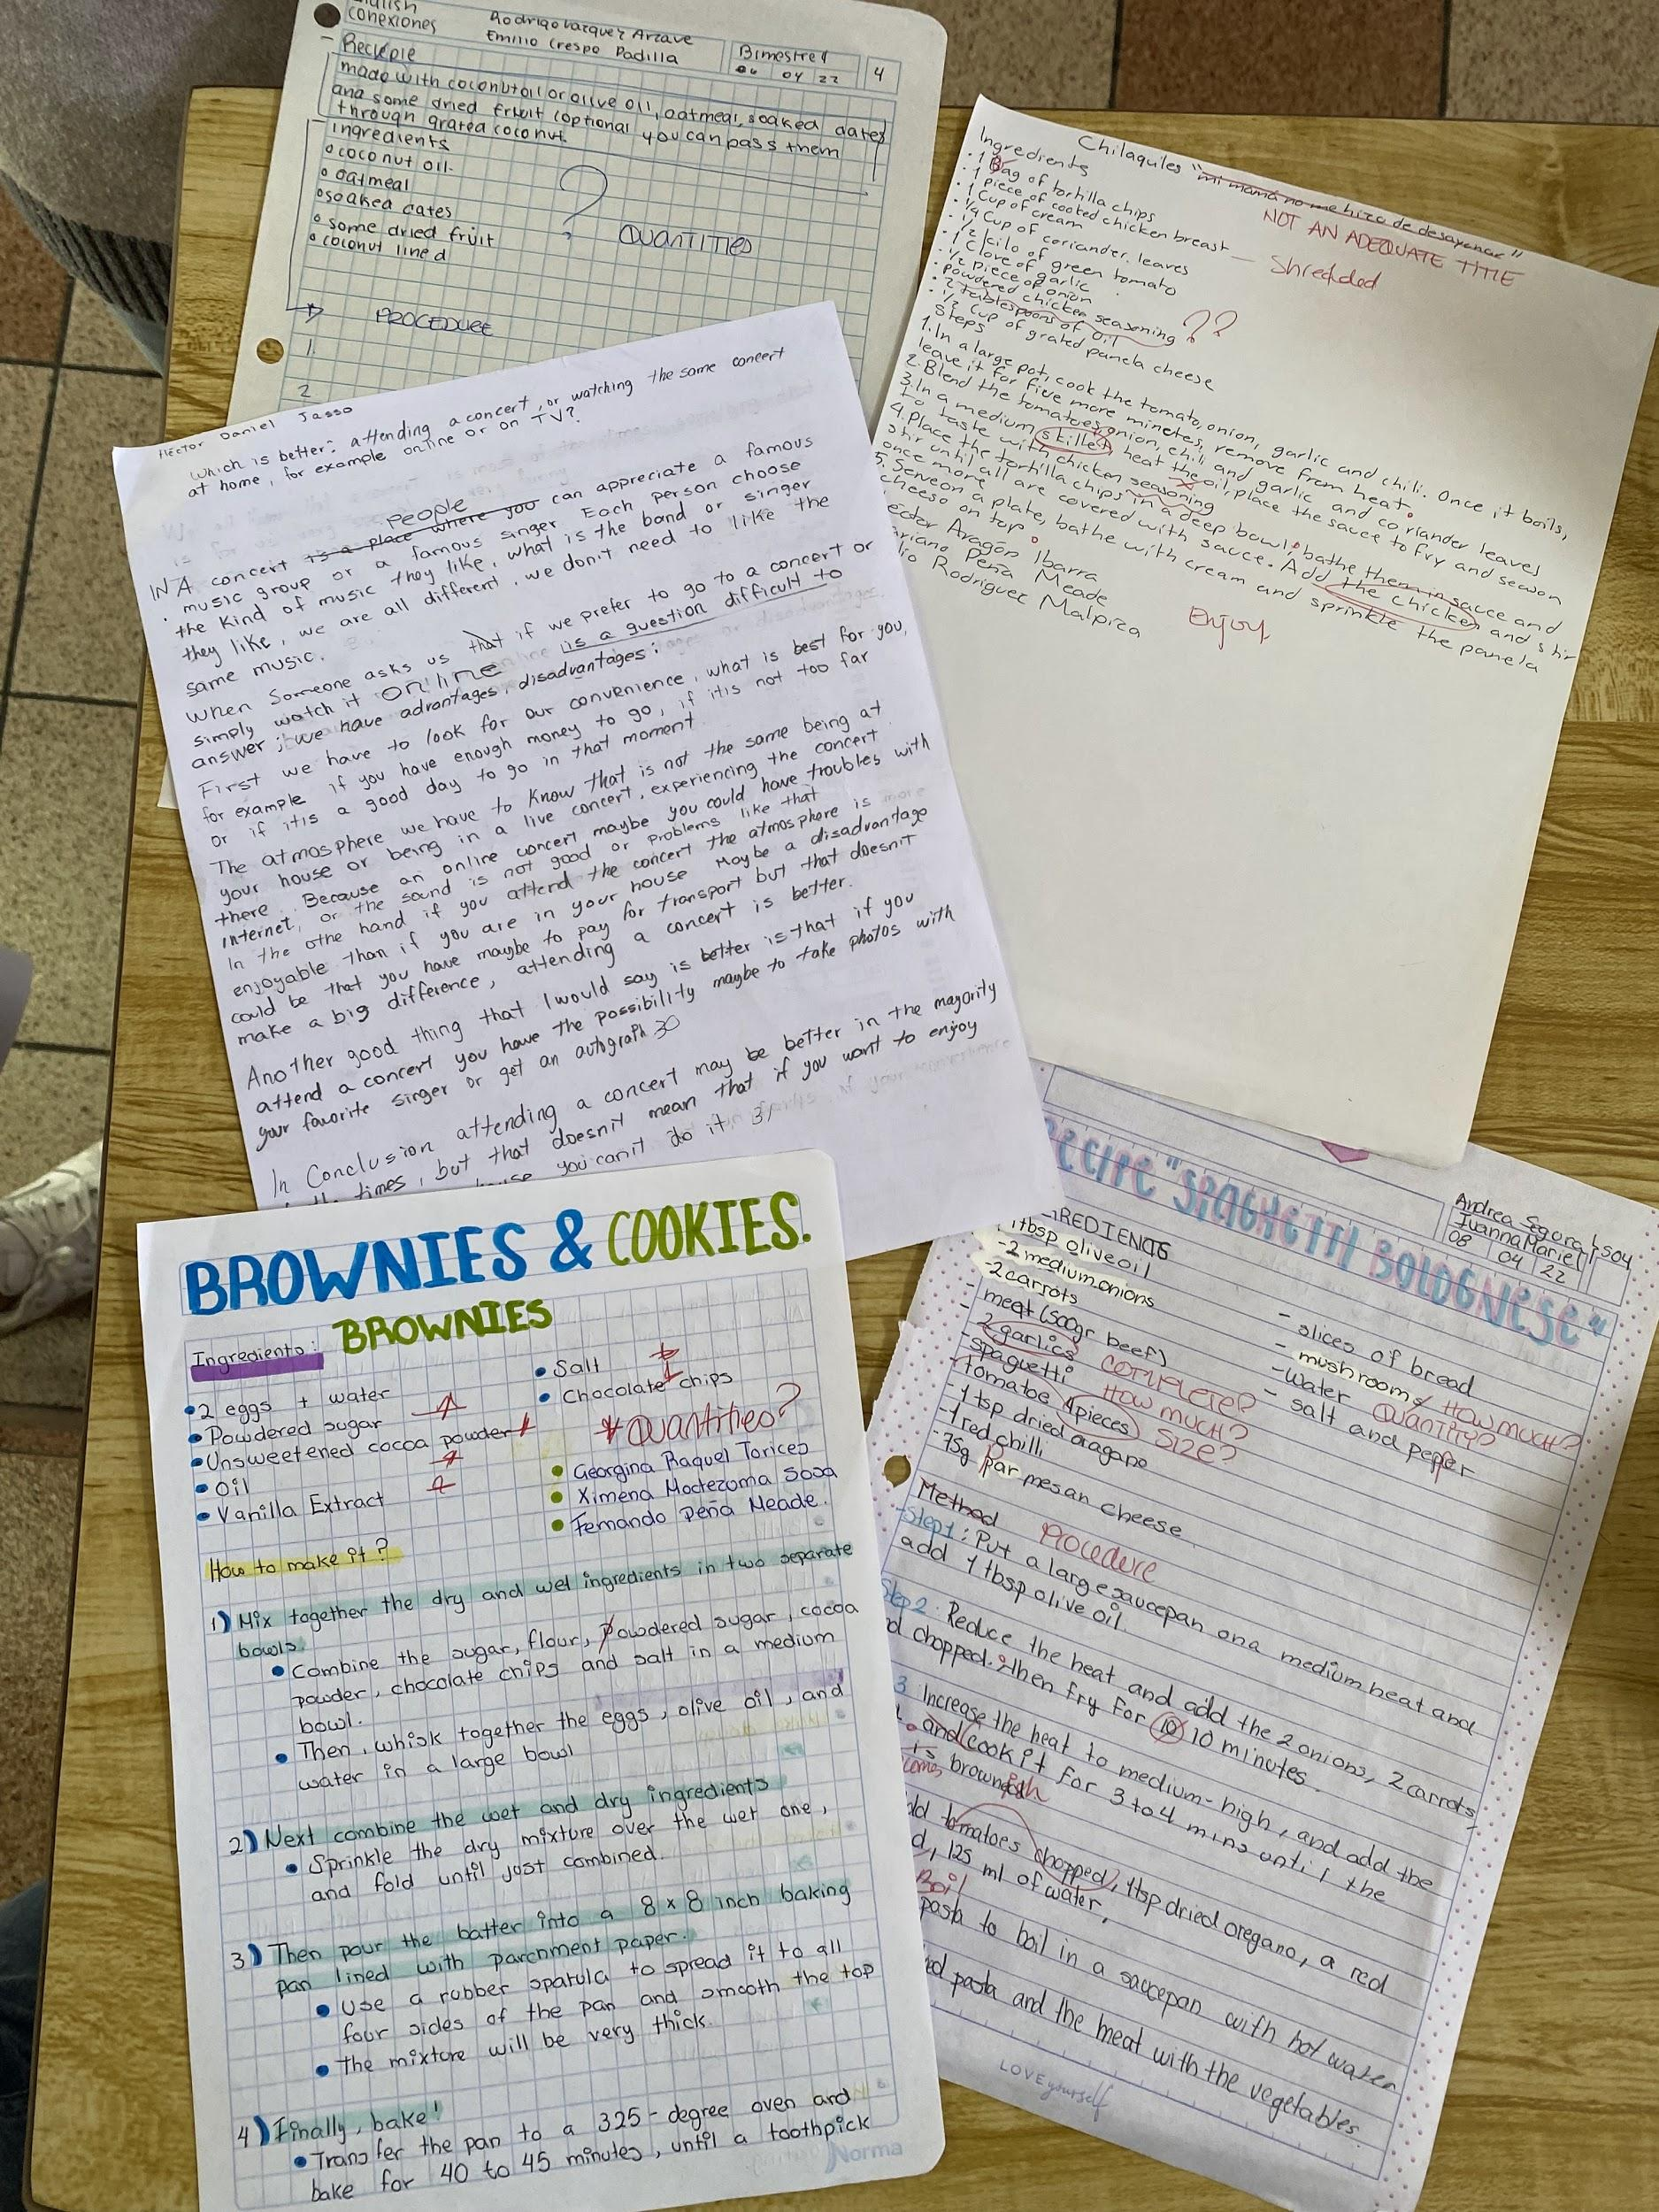 English
conexiones
Rodrigo Vazquez Arzave
Emilio Crespo Padilla
Bimestre 4
06 04 22
4
- Recipie
made with coconut oil or olive oil, oatmeal, soaked dates
and some dried fruit (optional you can pass them
through grated coconut.
ingredients
coconut oil.
oatmeal
soaked dates
some dried fruit
coconut lined
?
QUANTITIES
PROCEDURE
1.
2
Chilaquiles "mi mamá no me hizo de desayunar"
NOT AN ADEQUATE TITLE
Ingredients
· 1 Bag of tortilla chips
· 1 piece of cooked chicken breast — Shredded
· 1 Cup of cream
· 1/4 Cup of coriander leaves
· 1/2 kilo of green tomato
· 1 Clove of garlic
· 1/2 piece of onion
· Powdered chicken seasoning ??
· 2 tablespoons of oil
· 1/2 Cup of grated panela cheese
Steps
1. In a large pot, cook the tomato, onion, garlic and chili. Once it boils,
leave it for five more minutes, remove from heat.
2. Blend the tomatoes, onion, chili and garlic and coriander leaves
3. In a medium skillet, heat the oil, place the sauce to fry and season
to taste with chicken seasoning
4. Place the tortilla chips in a deep bowl, bathe them in sauce and
stir until all are covered with sauce. Add the chicken and stir
once more
5. Serve on a plate, bathe with cream and sprinkle the panela
cheese on top.
Aragón Ibarra
Peña Meade
Rodriguez Malpica
Enjoy
Héctor Daniel Jasso
Which is better: attending a concert, or watching the same concert
at home, for example online or on TV?
People
IN A concert is a place where you can appreciate a famous
music group or a famous singer. Each person choose
the kind of music they like, what is the band or singer
they like, we are all different, we don't need to like the
same music.
When someone asks us that if we prefer to go to a concert or
simply watch it online is a question difficult to
answer; we have advantages, disadvantages:
First we have to look for our convenience, what is best for you,
for example if you have enough money to go, if it is not too far
or if it is a good day to go in that moment.
The atmosphere we have to know that is not the same being at
your house or being in a live concert, experiencing the concert
there. Because an online concert maybe you could have troubles with
internet, or the sound is not good or problems like that
In the othe hand if you attend the concert the atmosphere is more
enjoyable than if you are in your house Maybe a disadvantage
could be that you have maybe to pay for transport but that doesn't
make a big difference, attending a concert is better.
Another good thing that I would say is better is that if you
attend a concert you have the possibility maybe to take photos with
your favorite singer or get an autograph 30
In Conclusion attending a concert may be better in the majority
times, but that doesn't mean that if you want to enjoy
you can't do it 31
BROWNIES & COOKIES.
BROWNIES
Ingredients:
2 eggs + water
Powdered sugar
Unsweetened cocoa powder
Oil
Vanilla Extract
Salt
Chocolate chips
* Quantities?
Georgina Raquel Torices
Ximena Moctezuma Sosa
Fernando Peña Meade.
How to make it?
1) Mix together the dry and wet ingredients in two separate
bowls.
Combine the sugar, flour, powdered sugar, cocoa
powder, chocolate chips and salt in a medium
bowl.
Then, whisk together the eggs, olive oil, and
water in a large bowl
2) Next combine the wet and dry ingredients
Sprinkle the dry mixture over the wet one,
and fold until just combined.
3) Then pour the batter into a 8 x 8 inch baking
pan lined with parchment paper.
Use a rubber spatula to spread it to all
four sides of the pan and smooth the top
The mixture will be very thick.
4) Finally, bake!
Transfer the pan to a 325-degree oven and
bake for 40 to 45 minutes, until a toothpick
Norma
"SPAGHETTI BOLOGNESE"
Andrea Segura
IvannaMariel
08 04 22
- 1 tbsp olive oil
- 2 medium onions
- 2 carrots
- meat (500gr beef)
- 2 garlics COMPLETE?
- spaguetti HOW MUCH?
- tomatoe 4pieces SIZE?
- 1 tsp dried oragano
- 1 red chilli
- 75g parmesan cheese
- slices of bread
- mushrooms HOW MUCH?
- water QUANTITY?
- salt and pepper
Method Procedure
- Step1: Put a large saucepan on a medium heat and
add 1 tbsp olive oil.
Step 2: Reduce the heat and add the 2 onions, 2 carrots
chopped. Then fry for 10 10 minutes.
3 Increase the heat to medium-high, and add the
and cook it for 3 to 4 mins until the
is browned
tomatoes chopped, 1tsp dried oregano, a red
125 ml of water,
Boil
pasta to boil in a saucepan with hot water
pasta and the meat with the vegetables.
LOVE yourself